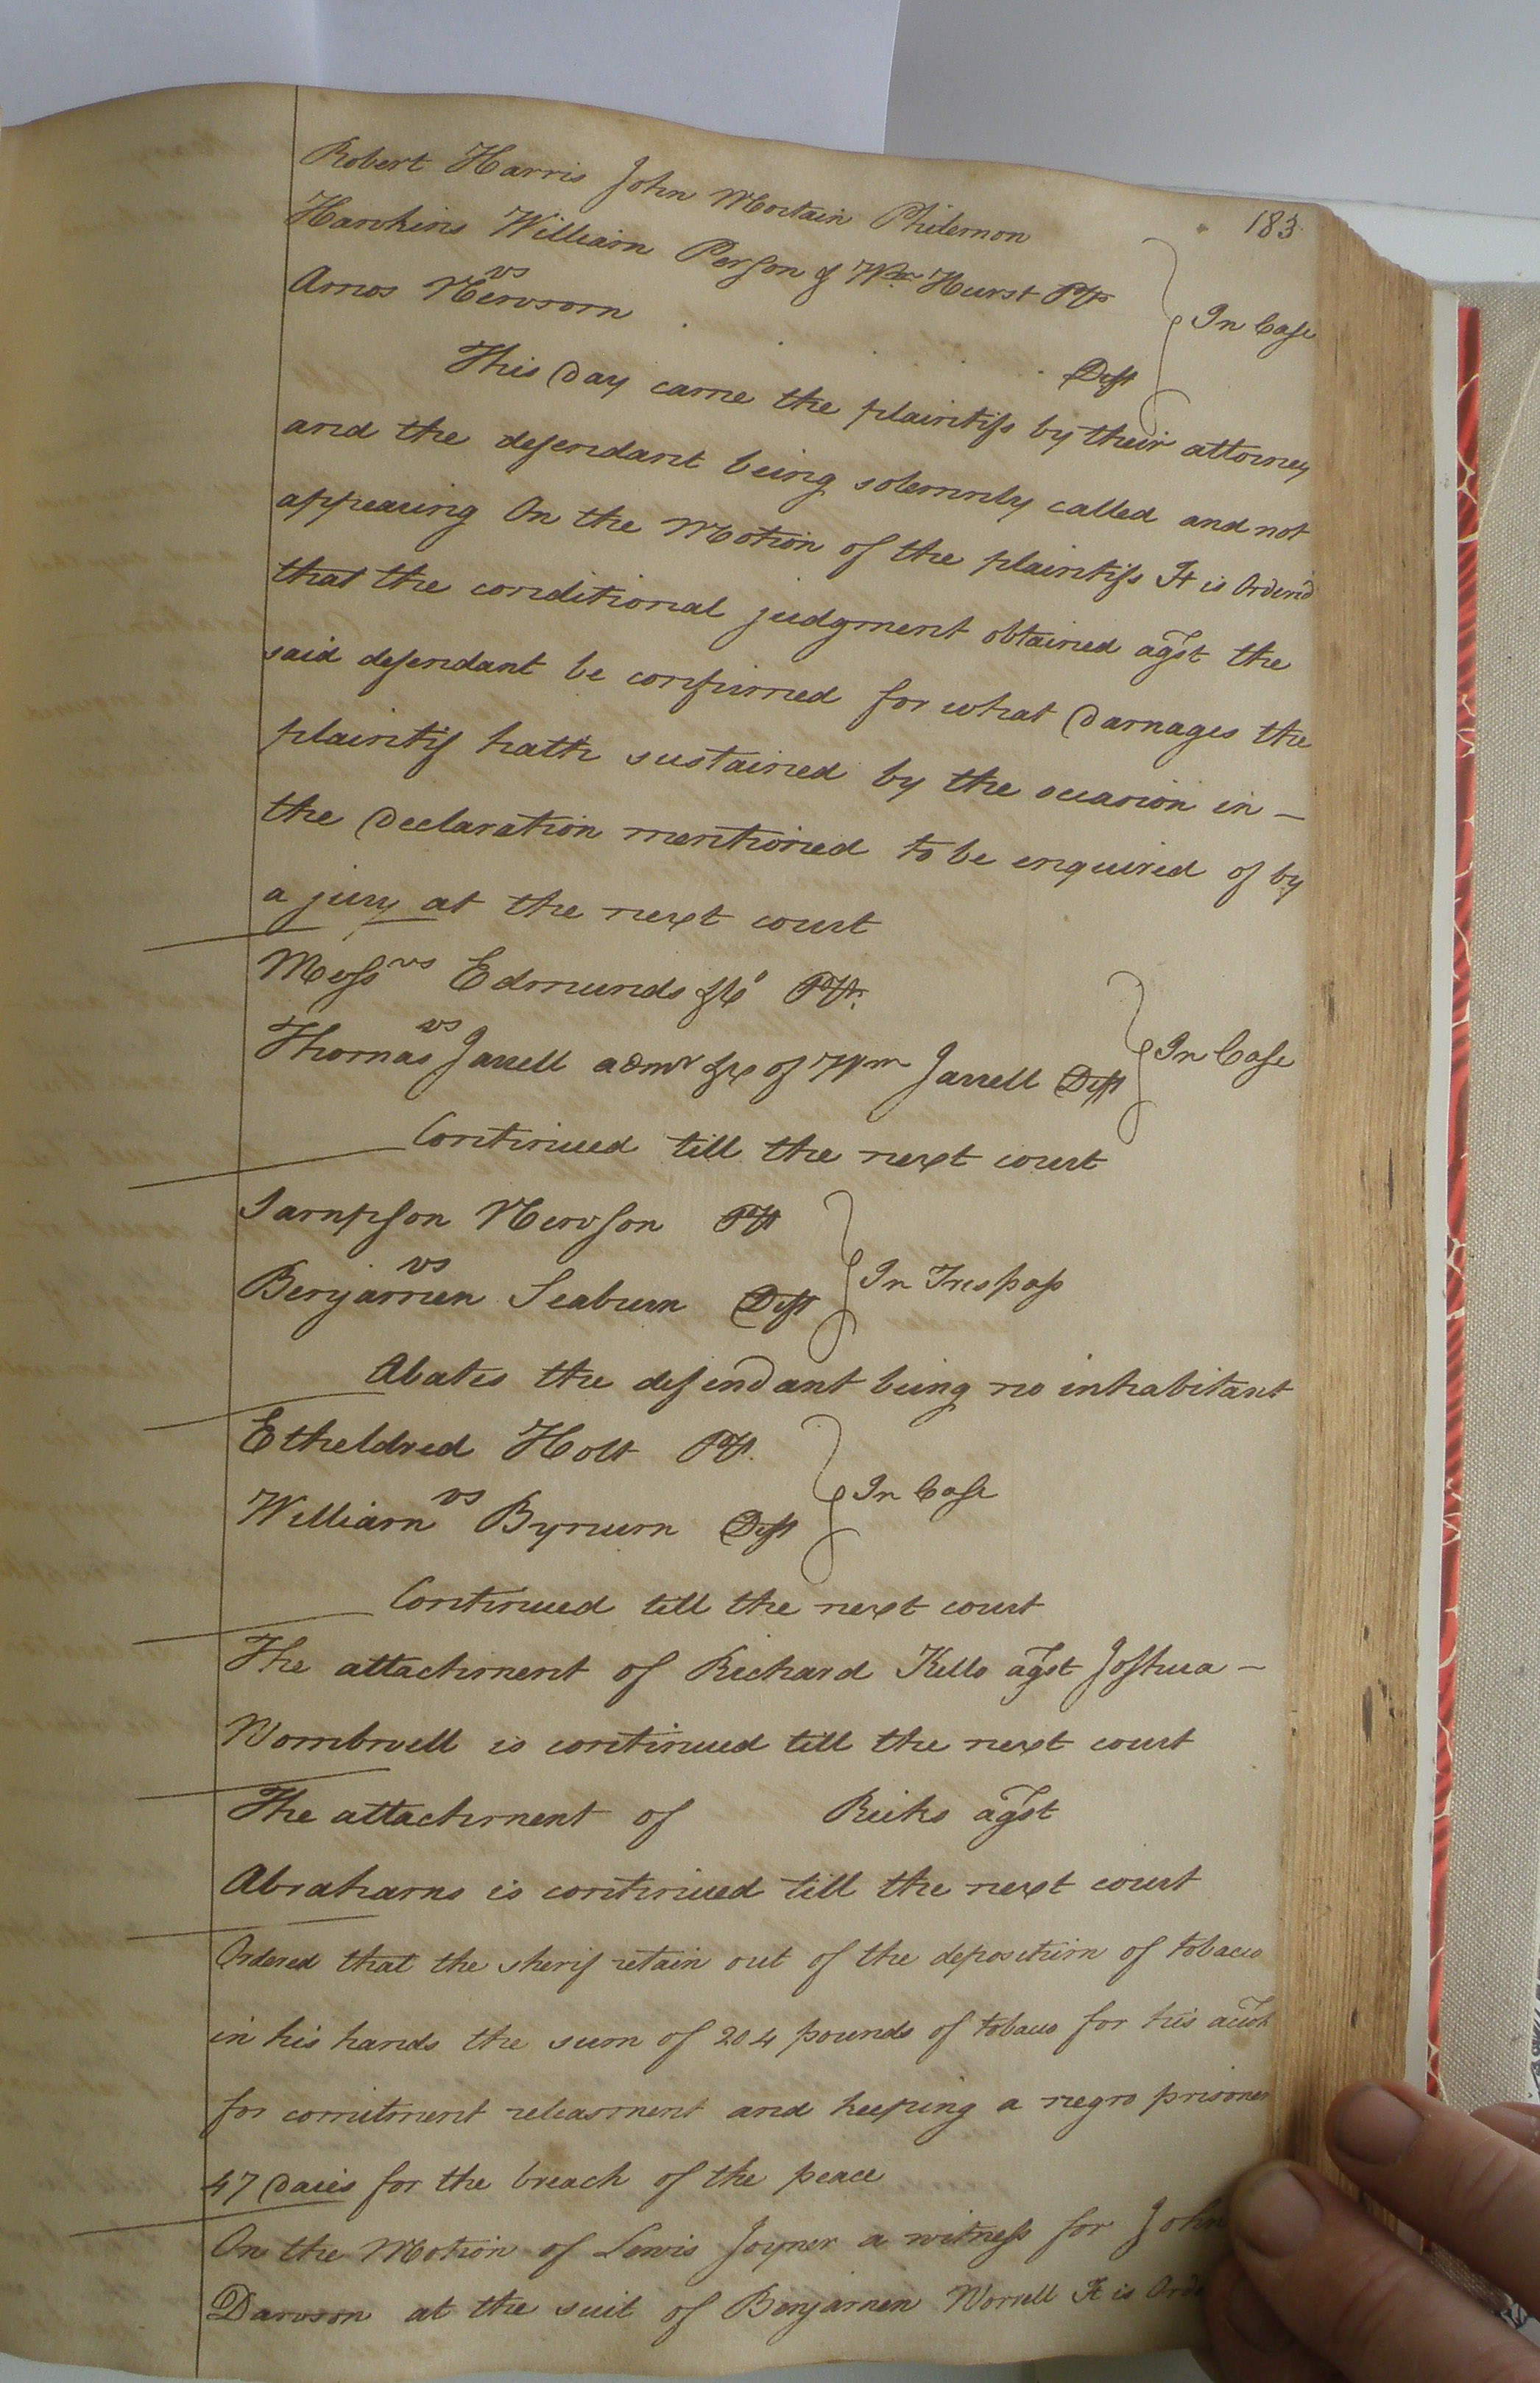 183
Robert Harris John Mortain Philemon
Hawkins William Person & Wm Hurst Plts
vs
Amos Newsom Deft
In Case
This Day came the plaintifs by their attorney
and the defendant being solemnly called and not
appearing On the Motion of the plaintifs It is Orderd
that the conditional judgment obtained agst the
said defendant be confirmed for what Damages the
plaintif hath sustained by the occasion in —
the Declaration mentioned to be enquired of by
a jury at the next court
Messrs Edmunds &Co Plts.
vs
Thomas Jarrell admr &c of Wm Jarrell Deft
In Case
Continued till the next court
Sampson Newson Plt
vs
Benjamen Seaburn Deft
In Trespass
Abates the defendant being no inhabitant
Etheldred Holt Plt.
vs
William Bynum Deft
In Case
Continued till the next court
The attachment of Richard Kello agst Joshua —
Wombwell is continued till the next court
The attachment of Ricks agst
Abrahams is continued till the next court
Ordered that the sherif retain out of the depositum of tobacco
in his hands the sum of 204 pounds of tobacco for his acct
for comitment releasment and keeping a negro prisoner
47 Daies for the breach of the peace
On the Motion of Lewis Joyner a witness for John
Dawson at the suit of Benjamen Worrell It is